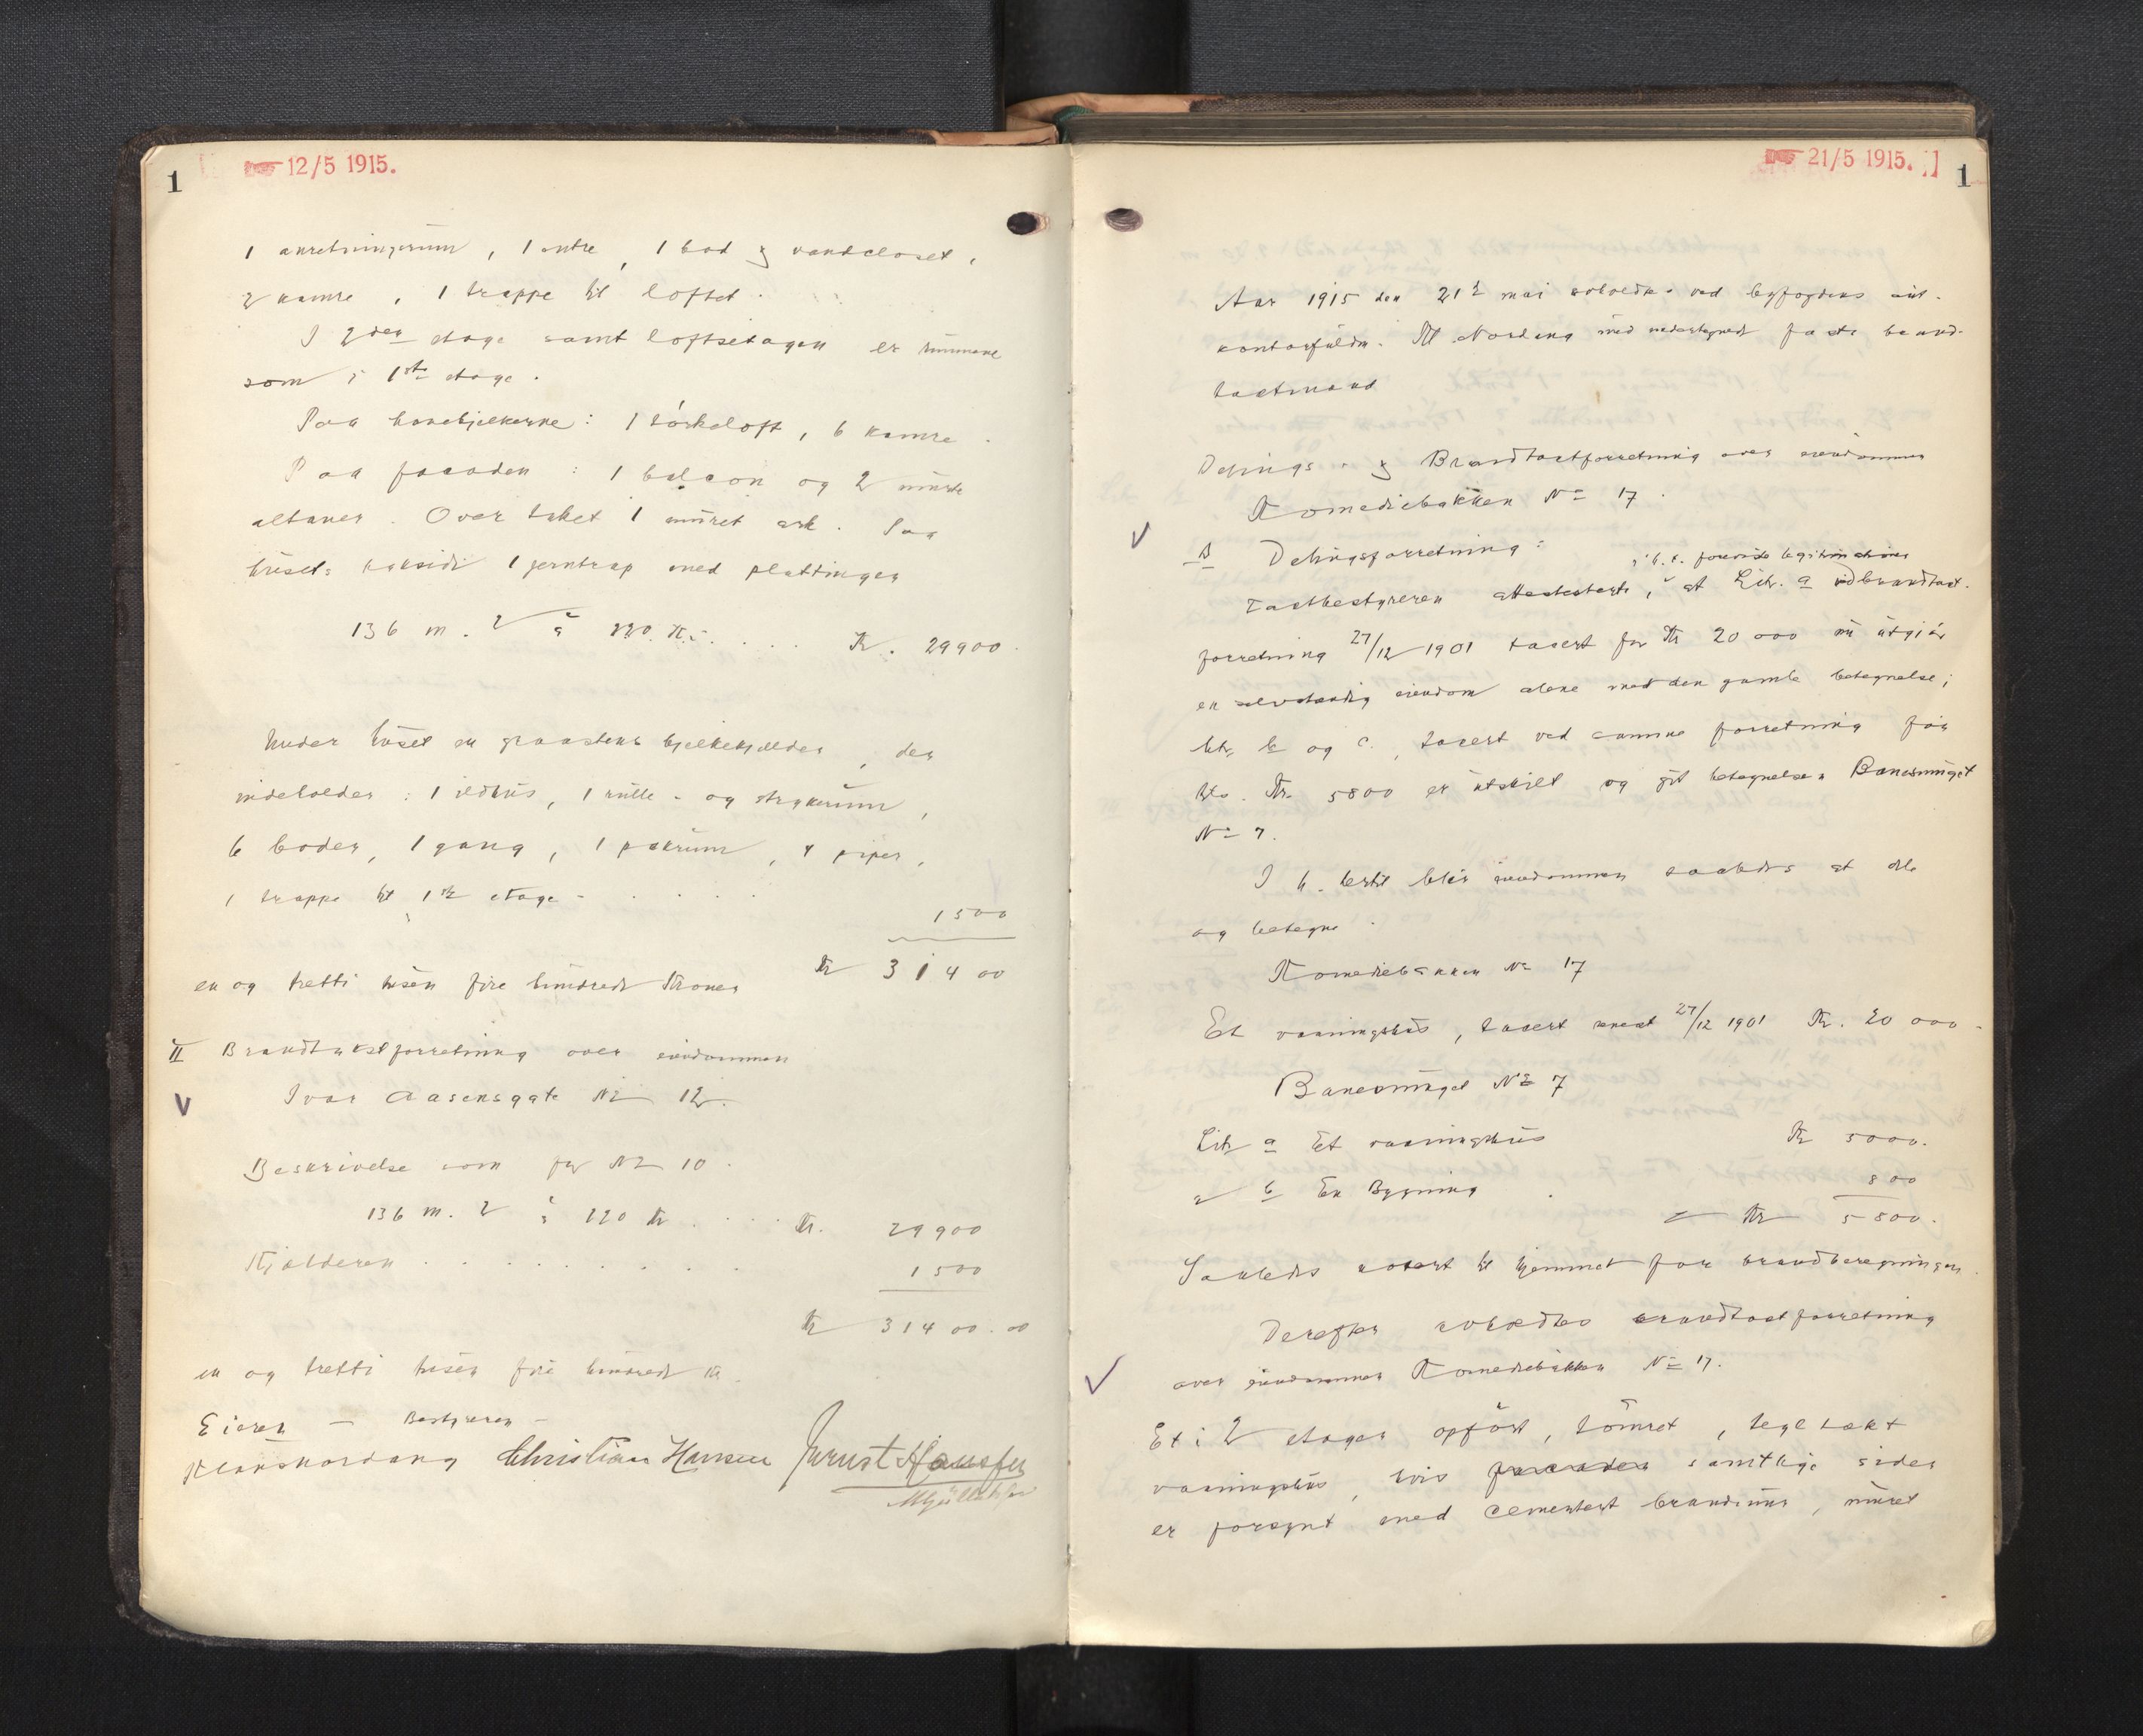 1
12/5 1915.
1 anretningsrum, 1 entre, 1 bod og vandcloset,
2 kamre, 1 trappe til loftet.
I 2den etage samt loftsetagen er rummene
som i 1ste etage.
Paa hanebjelkerne: 1 törkeloft, 6 kamre.
Paa facaden: 1 balcon og 2 murte
altaner. Over taket 1 muret ark. Paa
husets bakside 1 jerntrap med plattinger
136 m. 2 à 220 Kr. . . . Kr. 29900.
Under huset er graastens bjelkekjelder, der
indeholder: 1 ildhus, 1 rulle- og strykerum,
6 boder, 1 gang, 1 pakrum, 4 piper,
1 trappe til 1ste etage - . . . .
1500
en og tretti tusen fire hundrede Kroner Kr 31400
II Brandtakstforretning over eiendommen
V Ivar Aasensgate No 12.
Beskrivelse som for No 10.
136 m. 2 à 220 Kr. . . . Kr. 29900
Kjælderen . . . . . . . 1500
Kr 31400.00
en og tretti tusen fire hundrede Kr.
Eieren — Bestyreren —
Christian Hansen
21/5 1915.
1
Aar 1915 den 21de mai avholdtes ved byfogdens aut.
kontorfuldm. Kl Nordang med undertegnede faste brand-
taxtmænd
Delings- og Brandtaxtforretning over eiendommen
Komediebakken No 17.
V
Delingsforretning:
i h. t. foreviste legitimationer
Taxtbestyreren attesterte, at Litr. a ved brandtaxt-
forretning 27/12 1901 taxert for Kr 20 000 nu utgjör
en selvstændig eiendom alene med den gamle betegnelse;
litr. b og c, taxert ved samme forretning for
tils. Kr. 5800 er utskilt og git betegnelsen Banesmuget
No 7.
I h. hertil blev eiendommen saaledes at dele
og betegne.
Komediebakken No 17
Et vaaningshus, taxert senest 27/12 1901 Kr. 20 000-
Banesmuget No 7
Litr a Et vaaningshus Kr 5000.
" b En Bygning . 800
Kr 5800.
Saaledes notert til hjemmel for brandberegningen.
Derefter avholdtes brandtaxtforretning
V over eiendommen Komediebakken No 17.
Et i 2 etager opfört, tömret, tegltækt
vaaningshus, hvis facader samtlige sider
er forsynt med cementert brandmur, muret